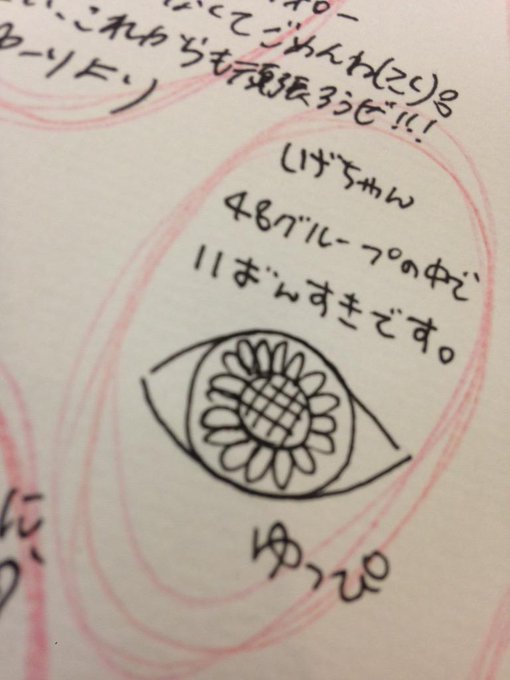 なくてごめんね
これからも頑張ろうぜ!!!
しげちゃん
48グループの中で
11ばんすきです。
ゆっぴ
に、